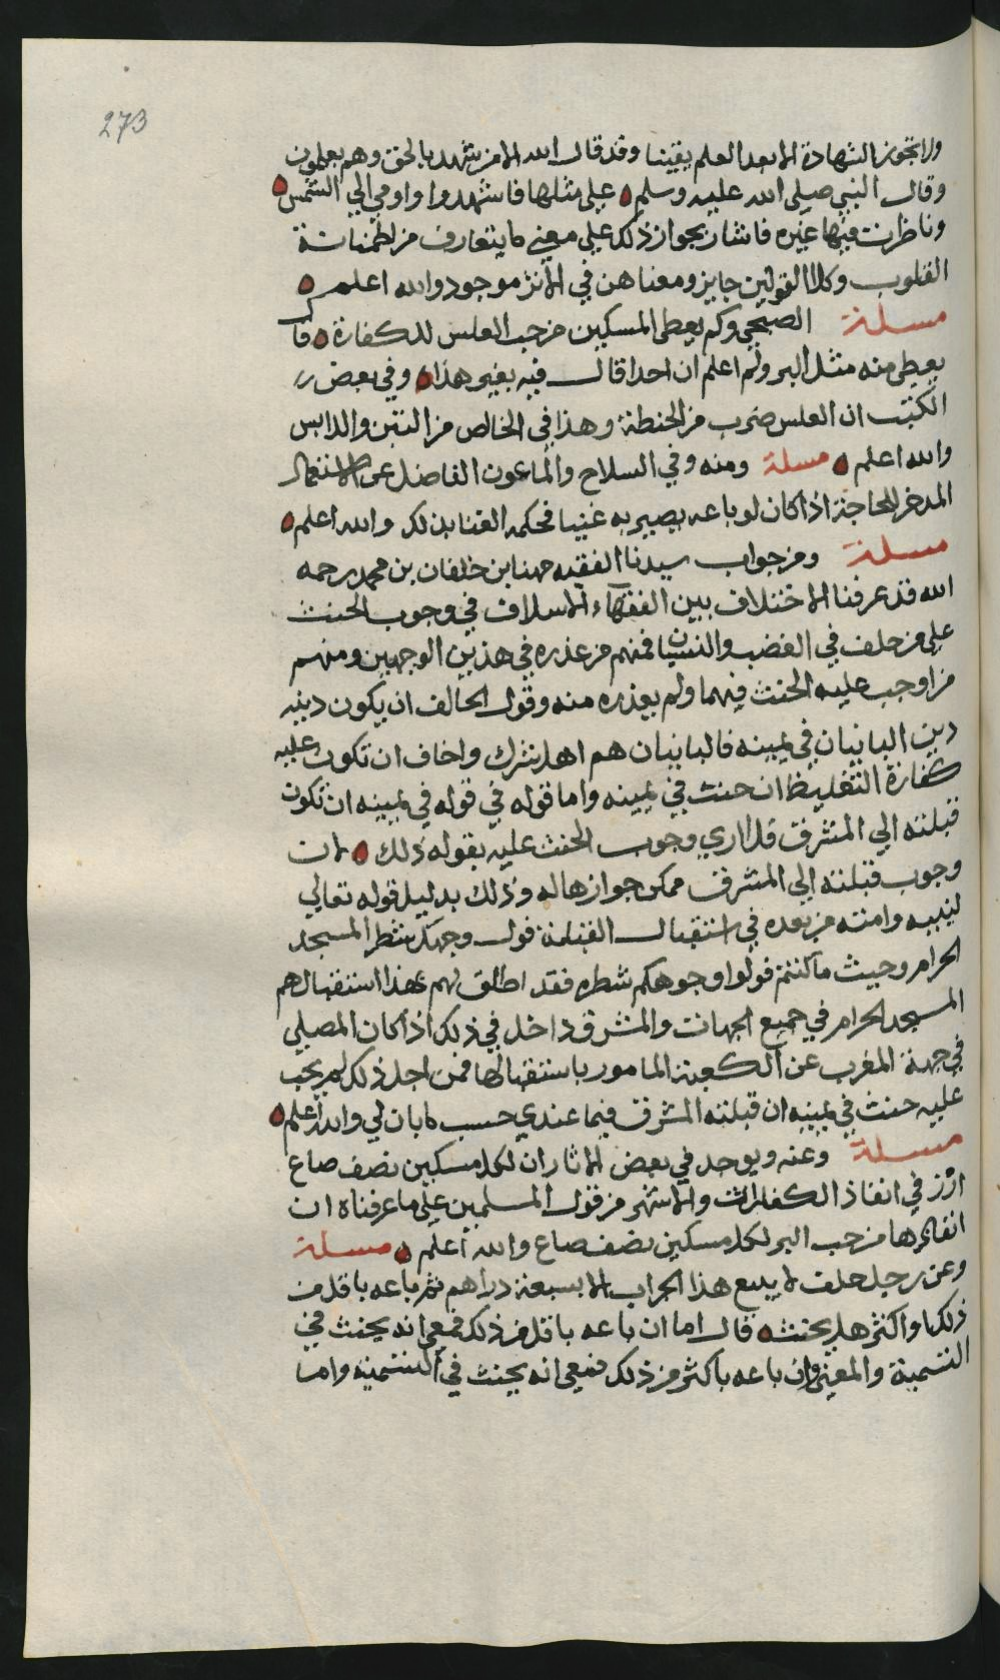 273
ولا تجوز الشهادة الا بعد العلم يقينا وقد قال الله الا من شهد بالحق وهم يعلمون
وقال النبي صلى الله عليه وسلم على مثلها فاشهدوا واومي الي الشمس
وناظرت فيها غيره فاشار بجواز ذلك علي معني ما يتعارف من اطمنانة
القلوب وكلا القولين جايز ومعناهن في الاثر موجود والله اعلم
مسلة الصبحي وكم يعطى المسكين من حب العلس للكفارة قال
يعطي منه مثل البر ولم اعلم ان احدا قال فيه بغير هذا وفي بعض
الكتب ان العلس ضرب من الحنطة وهذا في الخالص من التبن والدابس
والله اعلم مسلة ومنه وفي السلاح والماعون الفاضل عن الاستعمال
المدخر للحاجة اذا كان لو باعه يصير به غنيا فحكمه الغنا بذلك والله اعلم
مسلة ومن جواب سيدنا الفقيه مهنا بن خلفان بن محمد رحمه
الله قد عرفنا الاختلاف بين الفقهاء الاسلاف في وجوب الحنث
على من حلف في الغضب والنسيان فمنهم من عذره في هذين الوجهين ومنهم
من اوجب عليه الحنث فيهما ولم يعذره منه وقول الحالف ان يكون دينه
دين البانيان في يمينه فالبانيان هم اهل شرك واخاف ان تكون عليه
كفارة التغليظ ان حنث في يمينه واما قوله في قوله في يمينه ان تكون
قبلته الي المشرق فلا اري وجوب الحنث عليه بقوله ذلك لان
وجوب قبلته الي المشرق ممكن جوازها له وذلك بدليل قوله تعالي
لنبيه وامته من بعده في استقبال القبلة فول وجهك شطر المسجد
الحرام وحيث ما كنتم فولوا وجوهكم شطره فقد اطلق لهم بهذا استقبالهم
المسجد الحرام في جميع الجهات والمشرق داخل في ذلك اذا كان المصلي
في جهة المغرب عن الكعبة المامور باستقبالها فمن اجل ذلك لم يجب
عليه حنث في يمينه ان قبلته المشرق فيما عندي حسب ما بان لي والله اعلم
مسلة وعنه ويوجد في بعض الاثار ان لكل مسكين نصف صاع
ارز في انفاذ الكفارات والاشهر من قول المسلمين على ما عرفناه ان
انفاذها من حب البر لكل مسكين نصف صاع والله اعلم مسلة
وعن رجل حلف لا يبيع هذا الجراب الا بسبعة دراهم ثم باعه باقل من
ذلك او اكثر هل يحنث قال اما ان باعه باقل من ذلك فمعي انه يحنث في
التسمية والمعني وان باعه باكثر من ذلك فمعي انه يحنث في التسمية واما